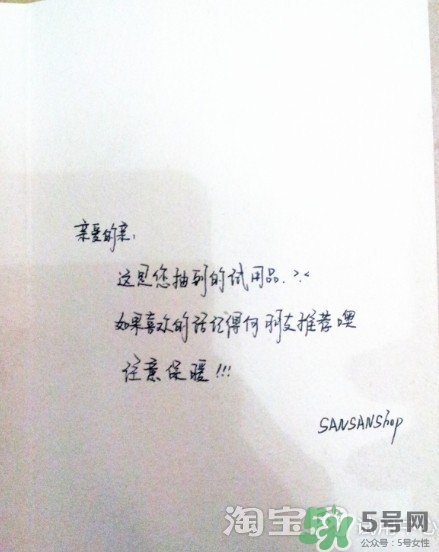 亲爱的亲：
这是您抽到的试用品.>.<
如果喜欢的话记得向朋友推荐噢
注意保暖!!!
SANSANShop
淘宝
5号网
公众号：5号女性